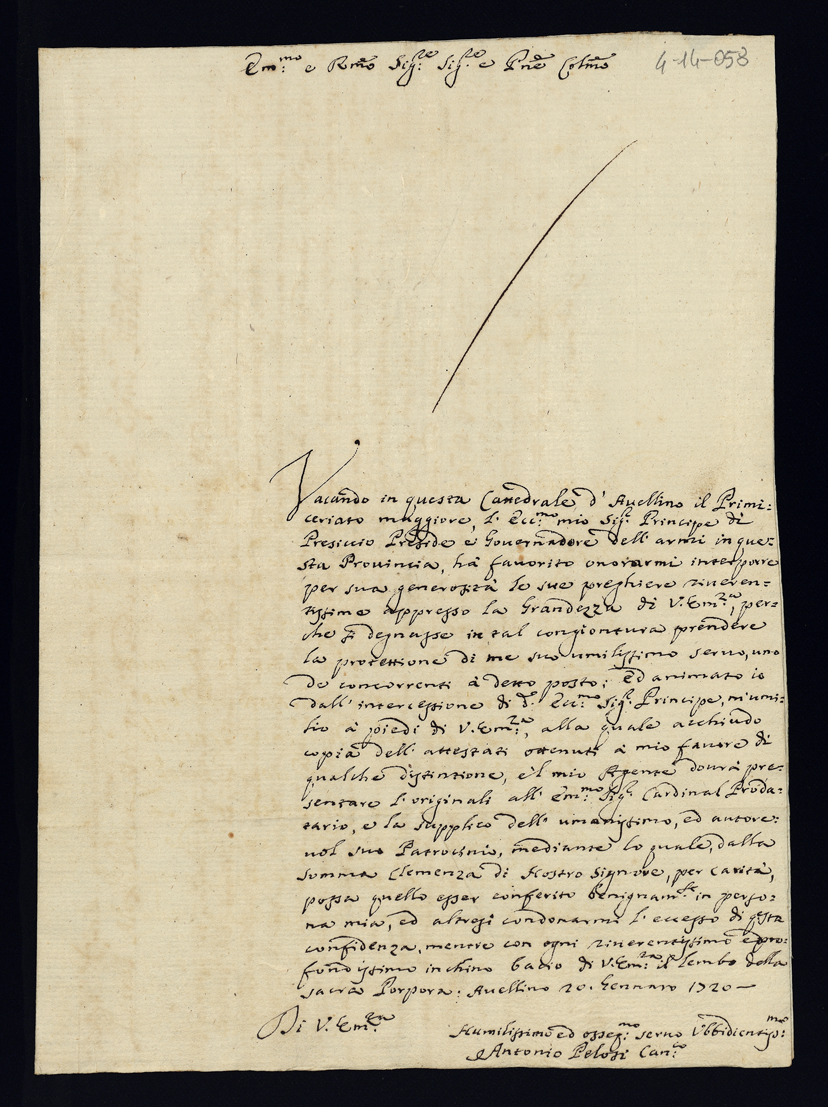 Em.mo e Rmo Sig.re Sig.re e Prne Colmo
4-14-058
Vacando in questa Cattedrale d'Avellino il Primi:
ceriato maggiore, l'Ecc.mo mio Sig.r Principe di
Presiccio Preside e Governadore dell'armi in que-
sta Provincia, hà favorito onorarmi interporre
per sua generosità le sue preghiere riveren-
tissime appresso la Grandezza di V. Em.za, per-
che si degnasse in tal congiontura prendere
la protettione di me suo umilissimo servo, uno
de concorrenti à detto posto; Ed animato io
dall'intercessione di d.o Ecc.mo Sig.r Principe, m'umi-
lio à piedi di V. Em.za, alla quale acchiudo
copia dell'attestati ottenuti à mio favore di
qualche distintione, e'l mio Agente dourà pre-
sentare l'originali all'Em.mo Sig.r Cardinal Proda-
tario, e la supplico dell'umanissimo, ed autore-
uol suo Patrocinio, mediante lo quale, dalla
somma Clemenza di Nostro Signore, per carità,
possa quello esser conferito benignam.te in perso-
na mia, ed altresi condonarmi l'eccesso di qsta
confidenza, mentre con ogni riverentissimo e pro-
fondissimo inchino bacio di V. Em.za il lembo della
sacra Porpora. Avellino 20. Gennaro 1720 —
Di V. Em.za
Humilissimo ed osseq.mo servo Vbbidientiss.mo
Antonio Pelosi Can.co